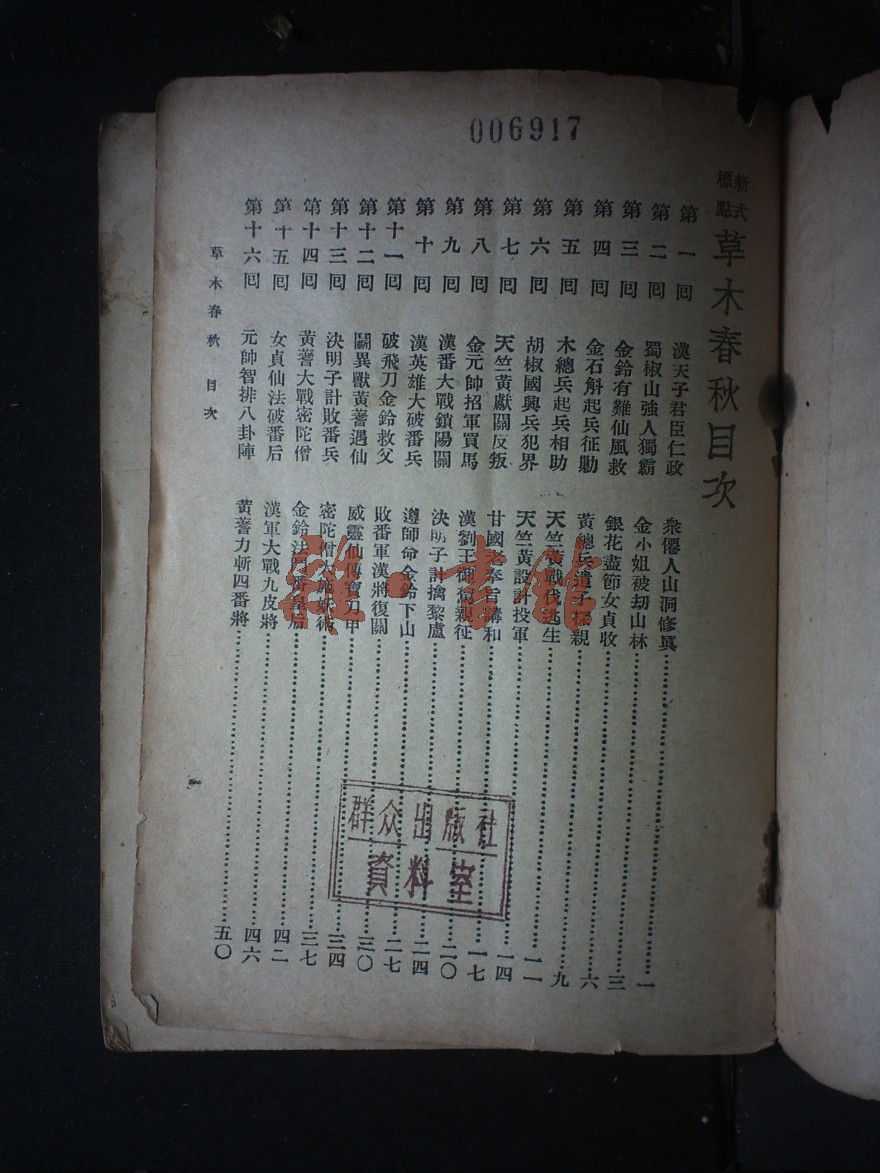 006917
新式標點 草木春秋目次
第一回 漢天子君臣仁政 衆僊人山洞修眞 一
第二回 蜀椒山強人獨霸 金小姐被刼山林 三
第三回 金鈴有難仙風救 銀花盡節女貞收 六
第四回 金石斛起兵征勦 黃總兵遣子探親 九
第五回 木總兵起兵相助 天竺黃戰伐逃生 一一
第六回 胡椒國興兵犯界 天竺黃設計投軍 一四
第七回 天竺黃獻關反叛 甘國老奉旨講和 一七
第八回 金元帥招軍買馬 漢劉王御駕親征 二〇
第九回 漢番大戰鎖陽關 決明子計擒黎盧 二四
第十回 漢英雄大破番兵 遵師命金鈴下山 二七
第十一回 破飛刀金鈴救父 敗番軍漢將復關 三〇
第十二回 鬭異獸黃蓍遇仙 威靈仙傳寶刀甲 三四
第十三回 決明子計敗番兵 密陀僧大施妖術 三七
第十四回 黃蓍大戰密陀僧 金鈴法鬥番皇后 四二
第十五回 女貞仙法破番后 漢軍大戰九皮將 四六
第十六回 元帥智排八卦陣 黃蓍力斬四番將 五〇
草木春秋 目次
群众出版社
資料室
雜·書館